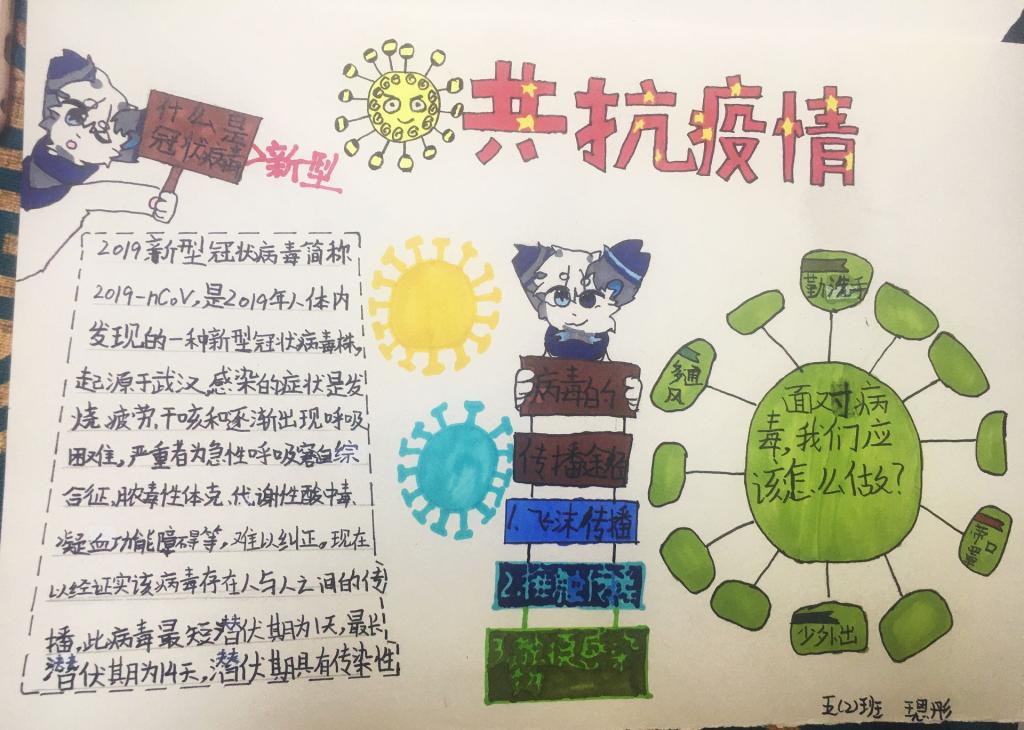 共抗疫情
什么是
冠状病毒
新型
2019新型冠状病毒简称
2019-nCoV,是2019年人体内
发现的一种新型冠状病毒株,
起源于武汉,感染的症状是发
烧,疲劳,干咳和逐渐出现呼吸
困难,严重者为急性呼吸窘迫综
合征,脓毒性休克,代谢性酸中毒、
凝血功能障碍等,难以纠正。现在
以经证实该病毒存在人与人之间的传
播,此病毒最短潜伏期为1天,最长
潜伏期为14天,潜伏期具有传染性
病毒的
传播途径
1.飞沫传播
2.接触传播
3.
感染
面对病
毒,我们应
该怎么做?
勤洗手
多通
风
带口
罩
少外出
五(2)班 王思彤